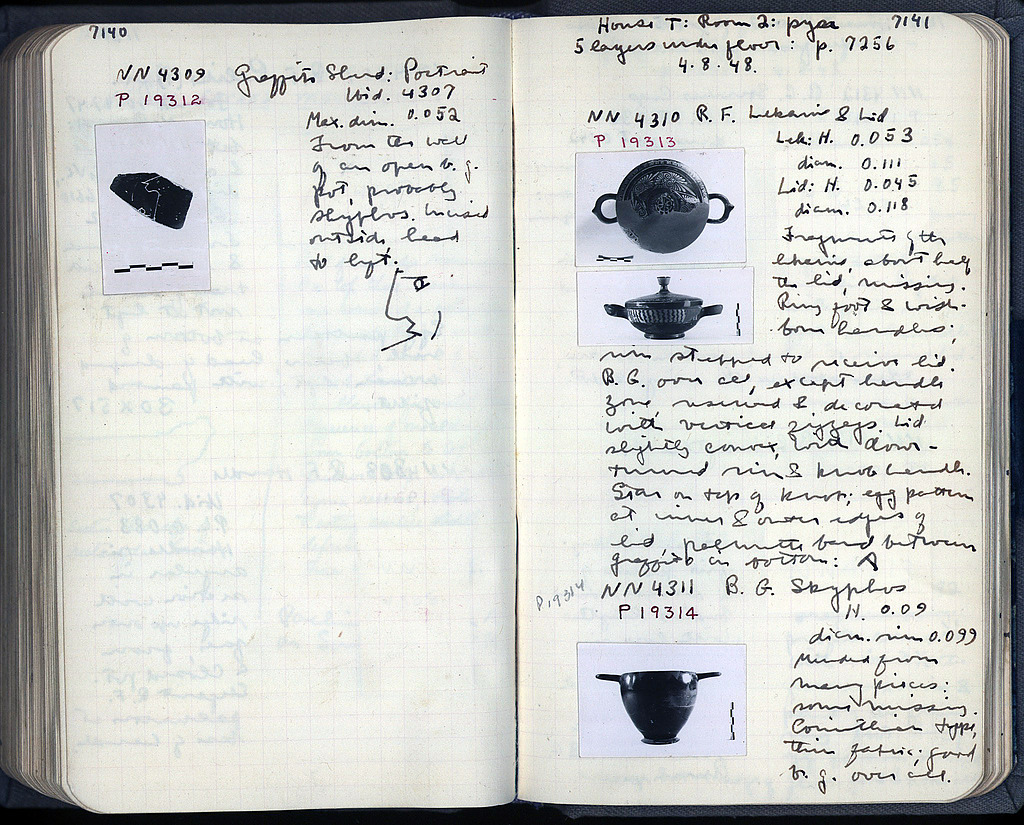 7140
NN 4309 Graffito Sherd: Portrait
P 19312
Ibid. 4307
Max. dim. 0.052
From the wall
of an open b. g.
pot, probably
skyphos. Incised
outside, head
to left.
7141
House T: Room 2: pyre
5 layers under floor: p. 7256
4.8.48.
NN 4310 R. F. Lekanis & Lid
P 19313
Lek: H. 0.053
diam. 0.111
Lid: H. 0.045
diam. 0.118
Fragments of the
lekanis, about half
the lid, missing.
Ring foot & wish-
bone handles;
rim stepped to receive lid.
B. G. over all, except handle
zone, reserved & decorated
with vertical zigzags. Lid
slightly convex, with down-
turned rim & knob handle.
Star on top of knob; egg pattern
at inner & outer edges of
lid, palmette band between
graffito on bottom: A
P 19314
NN 4311 B. G. Skyphos
P 19314
H. 0.09
diam. rim 0.099
Mended from
many pieces:
some missing.
Corinthian type,
thin fabric; good
b. g. over all.